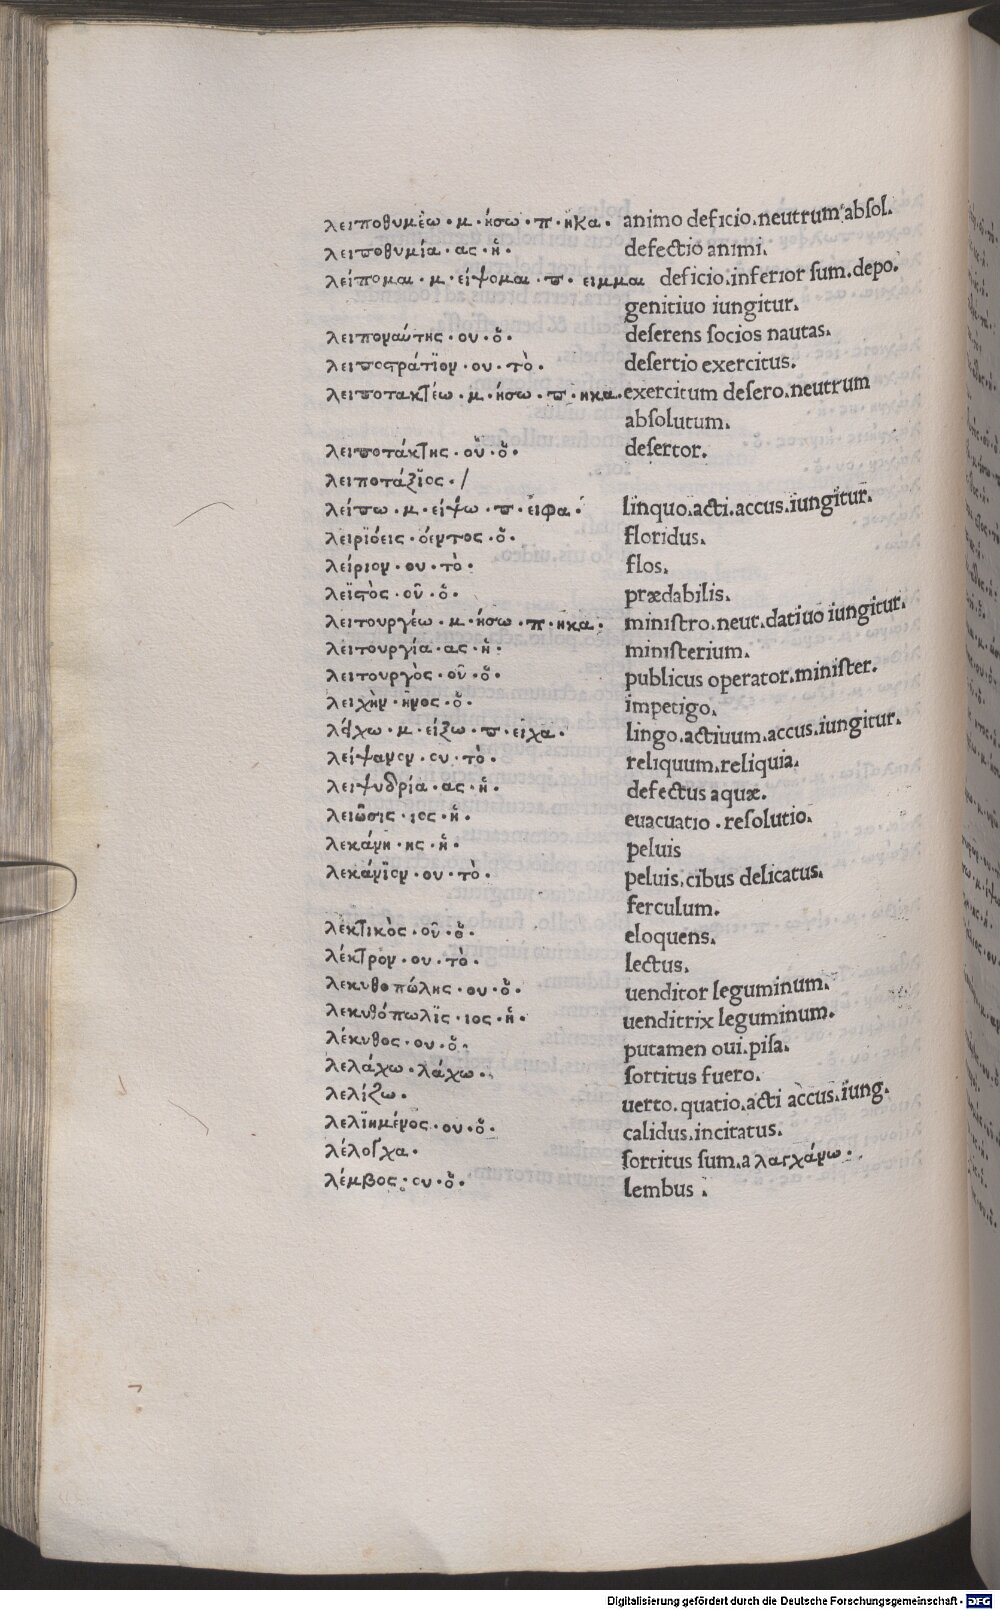 λειποθυμέω·μ·ήσω·π·ηκα· animo deficio.neutrum absol.
λειποθυμία·ας·ἡ· defectio animi.
λείπομαι·μ·είψομαι·π·ειμμαι deficio.inferior ſum.depo.
genitiuo iungitur.
λειποναύτης·ου·ὁ· deſerens ſocios nautas.
λειποστράτϊον·ου·τὸ· deſertio exercitus.
λειποτακτέω·μ·ήσω·π·ηκα· exercitum deſero.neutrum
abſolutum.
λειποτάκτης·οὑ·ὁ· deſertor.
λειποτάξϊος·/
λείπω·μ·είψω·π·ειφα· linquo.acti.accus.iungitur.
λειρϊόεις·όεντος·ὁ· floridus.
λείριον·ου·τὸ· flos.
λεϊστὸς·οῦ·ὁ· prædabilis.
λειτουργέω·μ·ήσω·π·ηκα· miniſtro.neut.datiuo iungitur.
λειτουργία·ας·ἡ· miniſterium.
λειτουργὸς·οῦ·ὁ· publicus operator.miniſter.
λειχὴν·ῆνος·ὁ· impetigo.
λείχω·μ·είξω·π·ειχα· lingo.actiuum.accus.iungitur.
λείψανον·ου·τὸ· reliquum.reliquia.
λειψυδρία·ας·ἡ· defectus aquæ.
λειῶσις·ιος·ἡ· euacuatio.reſolutio.
λεκάνη·ης·ἡ· peluis
λεκάνϊον·ου·τὸ· peluis.cibus delicatus.
ferculum.
λεκτικὸς·οῦ·ὁ· eloquens.
λέκτρον·ου·τὸ· lectus.
λεκυθοπώλης·ου·ὁ· uenditor leguminum.
λεκυθόπωλϊς·ιος·ἡ· uenditrix leguminum.
λέκυθος·ου·ὁ· putamen oui.piſa.
λελάχω·λάχω· ſortitus fuero.
λελίζω· uerto.quatio.acti accus.iung.
λελϊημένος·ου·ὁ· calidus.incitatus.
λέλογχα· ſortitus ſum.a λαγχάνω·
λέμβος·ου·ὁ· lembus.
Digitalisierung gefördert durch die Deutsche Forschungsgemeinschaft - DFG